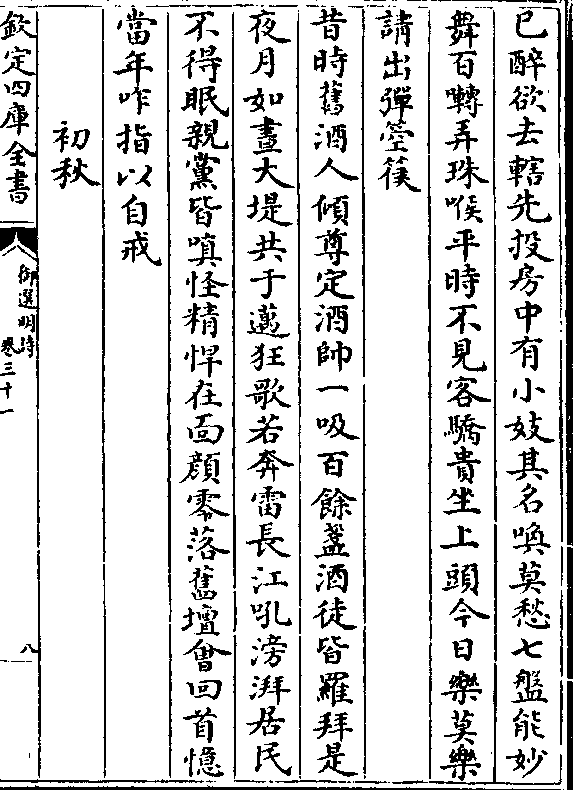 已醉欲去轄先投房中有小妓其名喚莫愁七盤能妙
舞百囀弄珠喉平時不見客驕貴坐上頭今日樂莫樂
請出彈箜篌
昔時舊酒人傾尊定酒帥一吸百餘盞酒徒皆羅拜是
夜月如晝大堤共于邁狂歌若奔雷長江吼滂湃居民
不得眠親黨皆嗔怪精悍在面顔零落舊壇會回首憶
當年咋指以自戒
初秋
欽定四庫全書
御選明詩
卷三十一
八